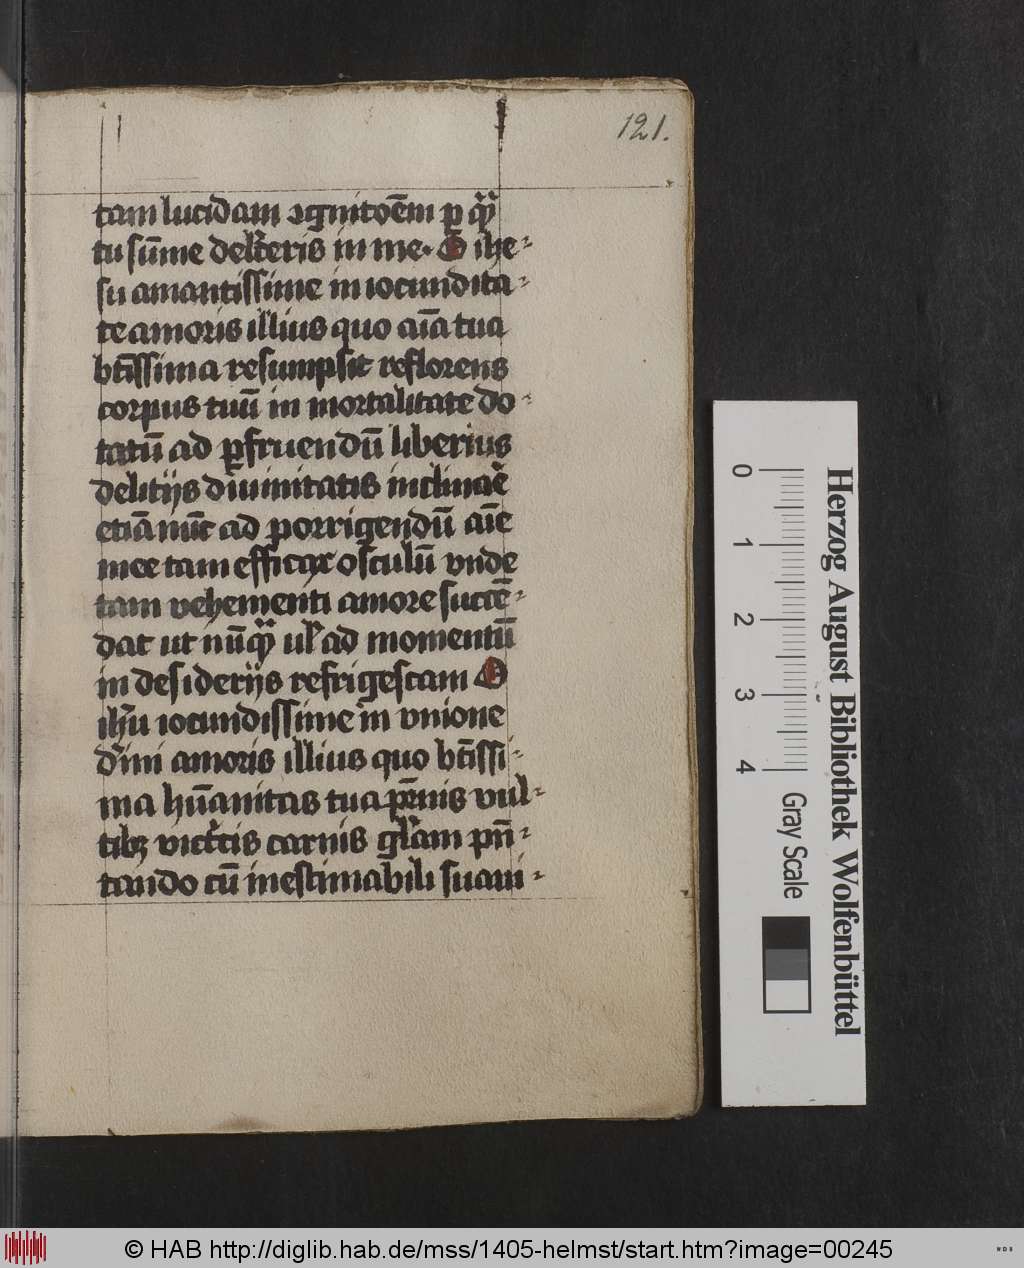 121.
tam lucidam ꝯgnitōēm ꝑ quā
tu sūme delc̄teris in me. O ihe-
su amantissime in iocundita-
te amoris illius quo aīa tua
btīssima resumpsit reflorens
corpus tuū in mortalitate do-
tatū ad ꝑfruendū liberius
delitijs diuinitatis inclinarē
etiā nūc ad porrigendū aīe
mee tam efficax osculū vnde
tam vehementi amore succē-
dat ut nūqᷓ ul' ad momentū
in desiderijs refrigescam O
ihū iocundissime in vnione
dīni amoris illius quo btīssi-
ma hūanitas tua ꝑennis vul-
tibꝫ vict̄cis carnis gl'am pn̄-
tando cū inestimabili suaui-
0 1 2 3 4
Gray Scale
Herzog August Bibliothek Wolfenbüttel
© HAB http://diglib.hab.de/mss/1405-helmst/start.htm?image=00245